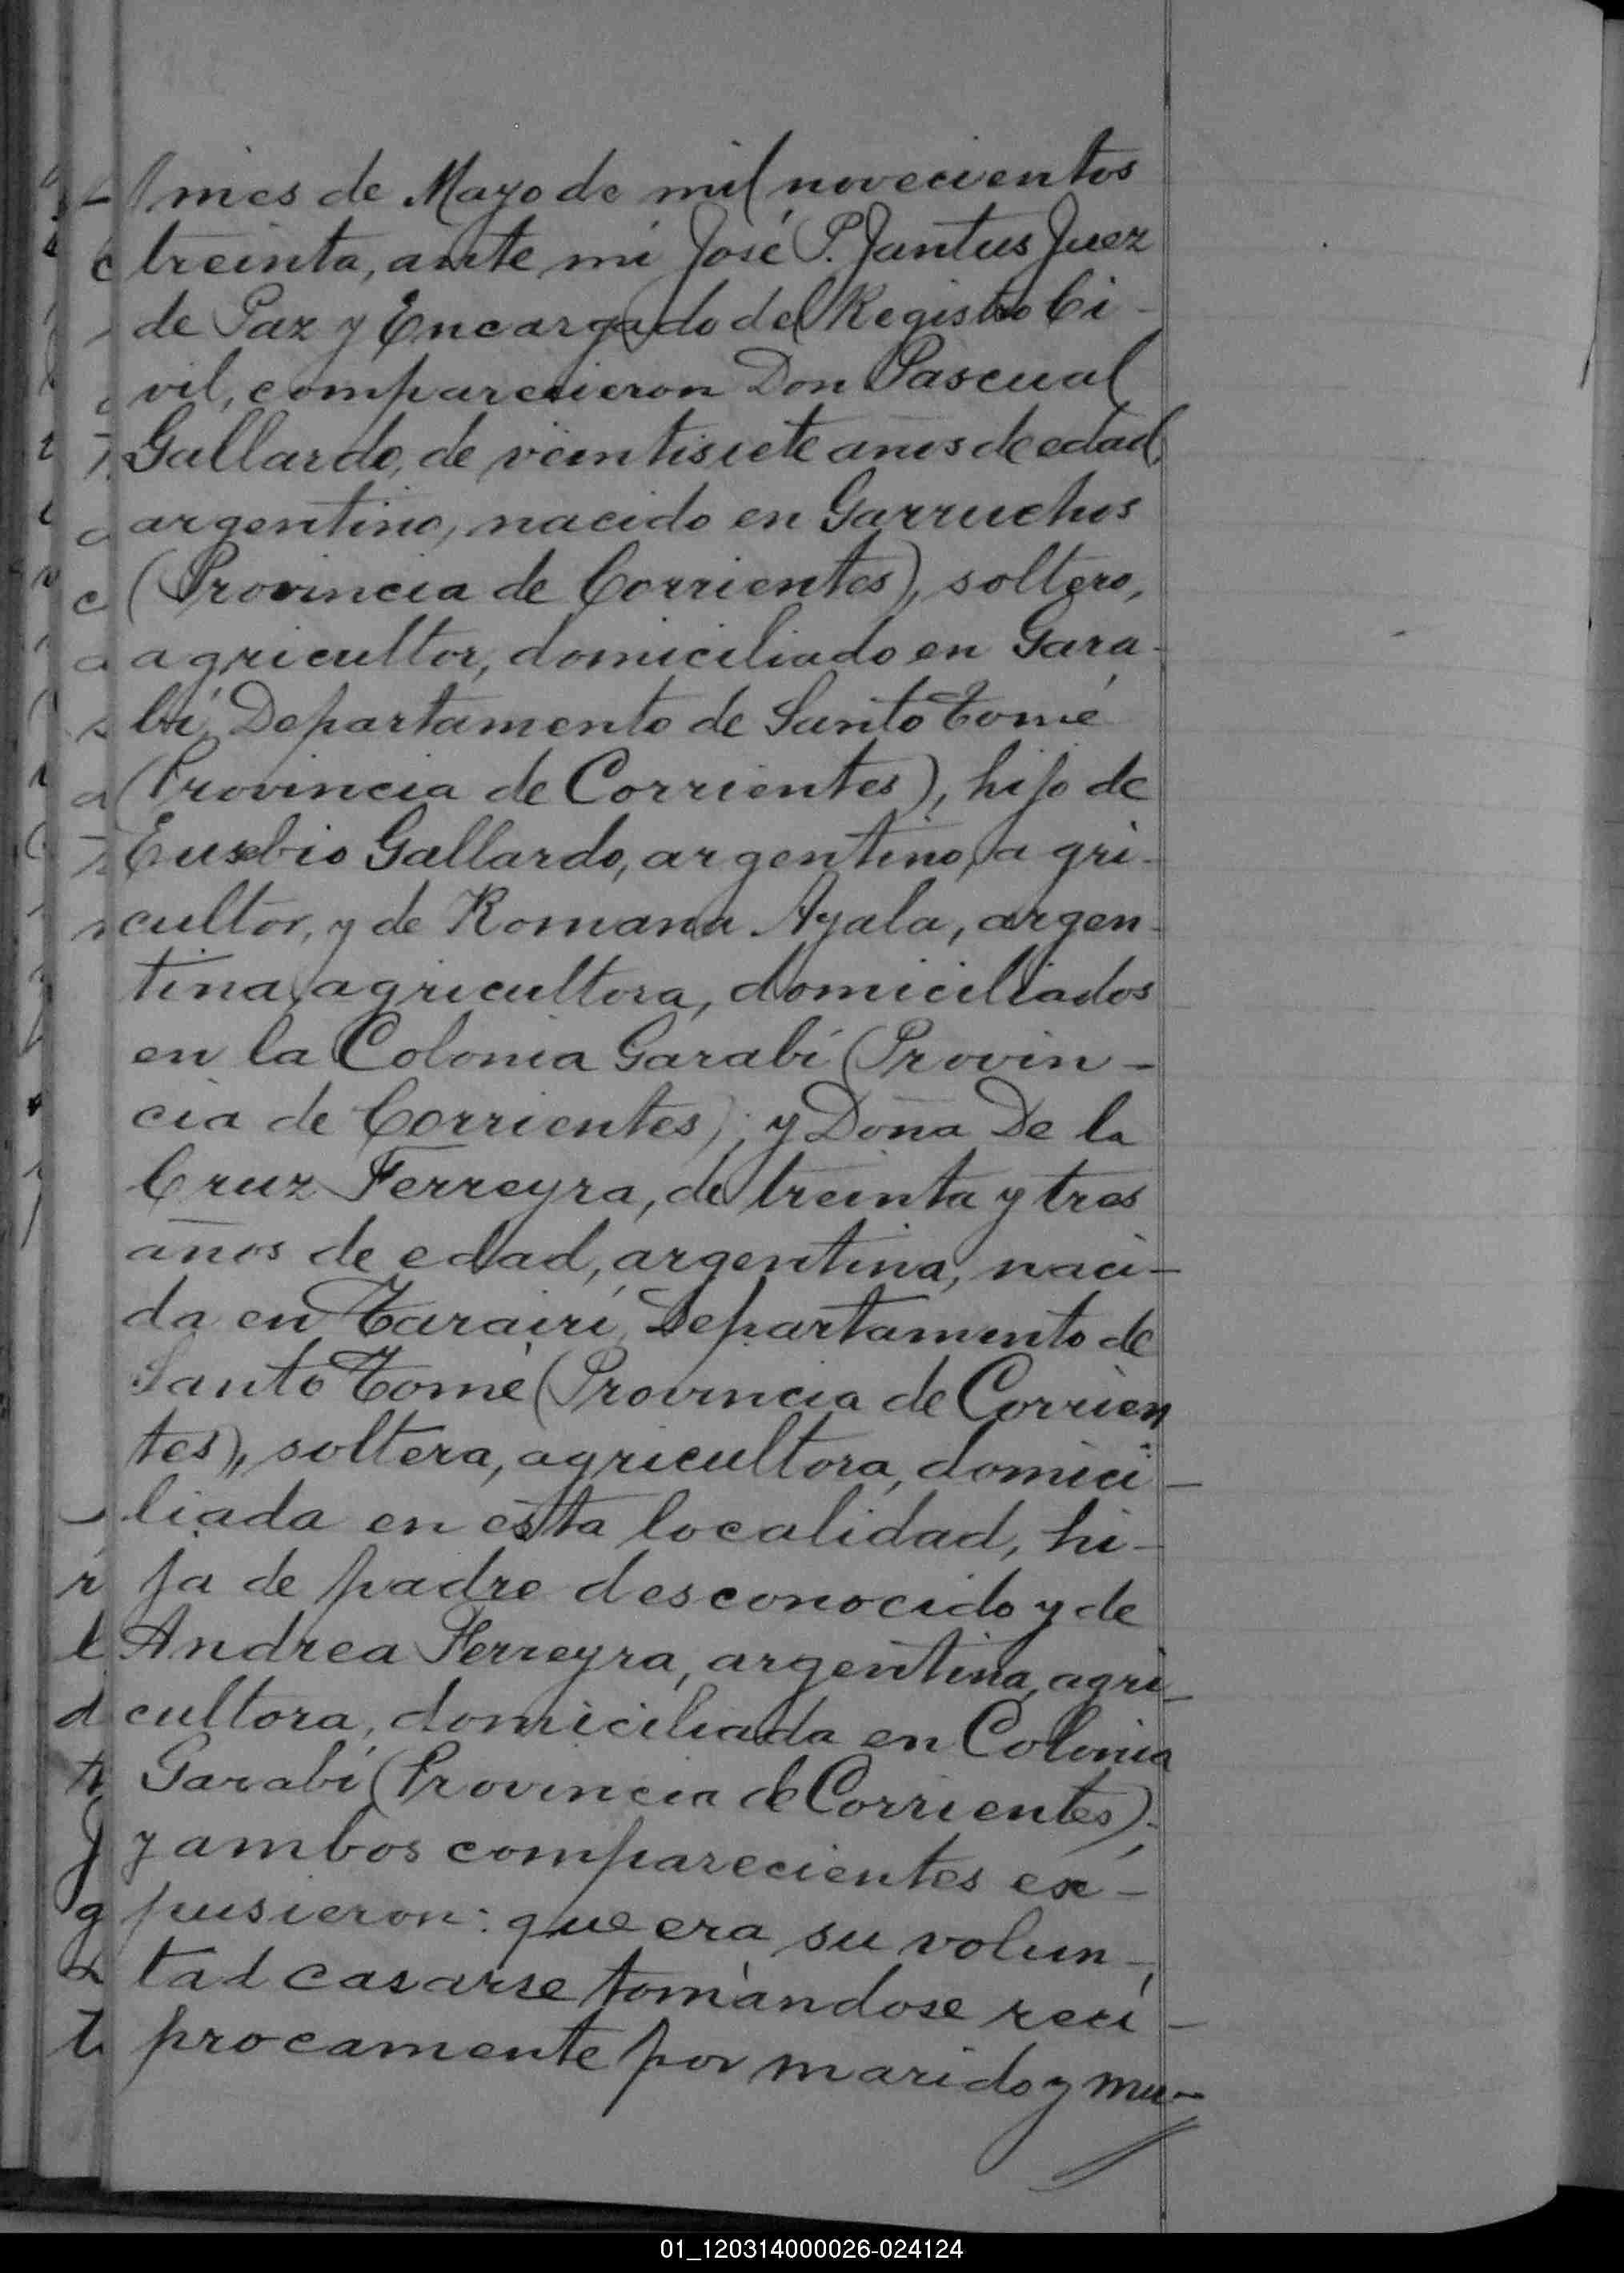 //mes de Mayo de mil novecientos
treinta, ante mi José P. Jantus Juez
de Paz y Encargado del Registro Ci-
vil, comparecieron Don Pascual
Gallardo, de veintisiete años de edad,
argentino, nacido en Garruchos
(Provincia de Corrientes), soltero,
agricultor, domiciliado en Gara-
bí, Departamento de Santo Tomé
(Provincia de Corrientes), hijo de
Eusebio Gallardo, argentino, agri-
cultor, y de Romana Ayala, argen-
tina, agricultora, domiciliados
en la Colonia Garabí (Provin-
cia de Corrientes); y Doña De la
Cruz Ferreyra, de treinta y tres
años de edad, argentina, naci-
da en Tarairí, Departamento de
Santo Tomé (Provincia de Corrien
tes), soltera, agricultora, domici-
liada en esta localidad, hi-
ja de padre desconocido y de
Andrea Ferreyra, argentina, agri-
cultora, domiciliada en Colonia
Garabí (Provincia de Corrientes);
y ambos comparecientes ex-
pusieron: que era su volun-
tad casarse tomándose recí-
procamente por marido y mu-
//
01_120314000026-024124